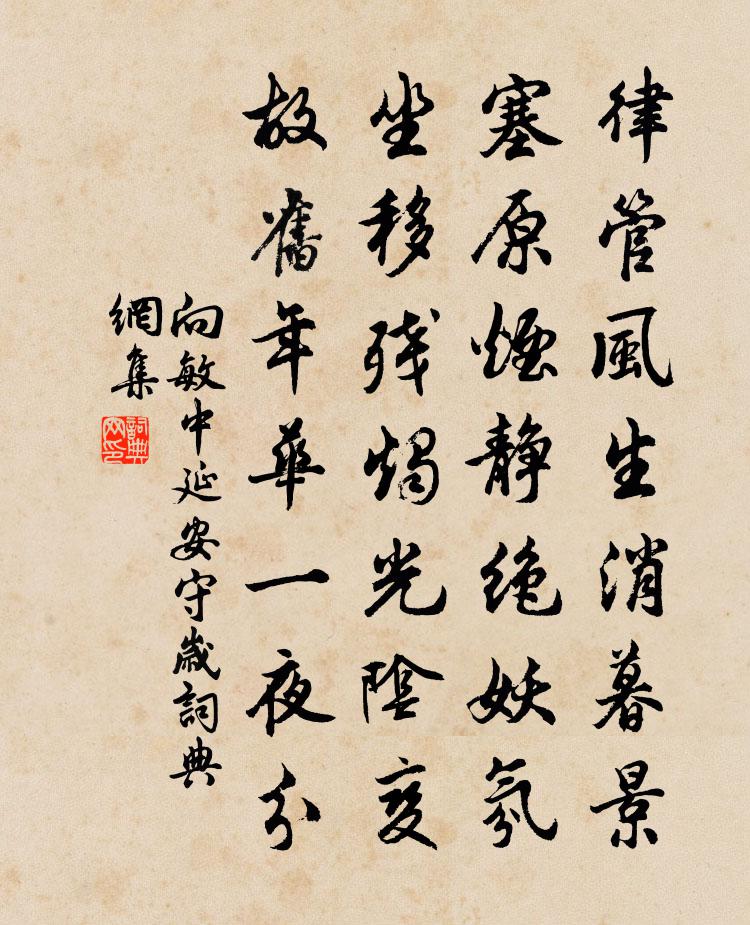 律管風生消暮景
塞原煙静绝妖氛
坐移残燭光陰变
故舊年華一夜分
向敏中延安守歲詞典
網集
詞典
网印